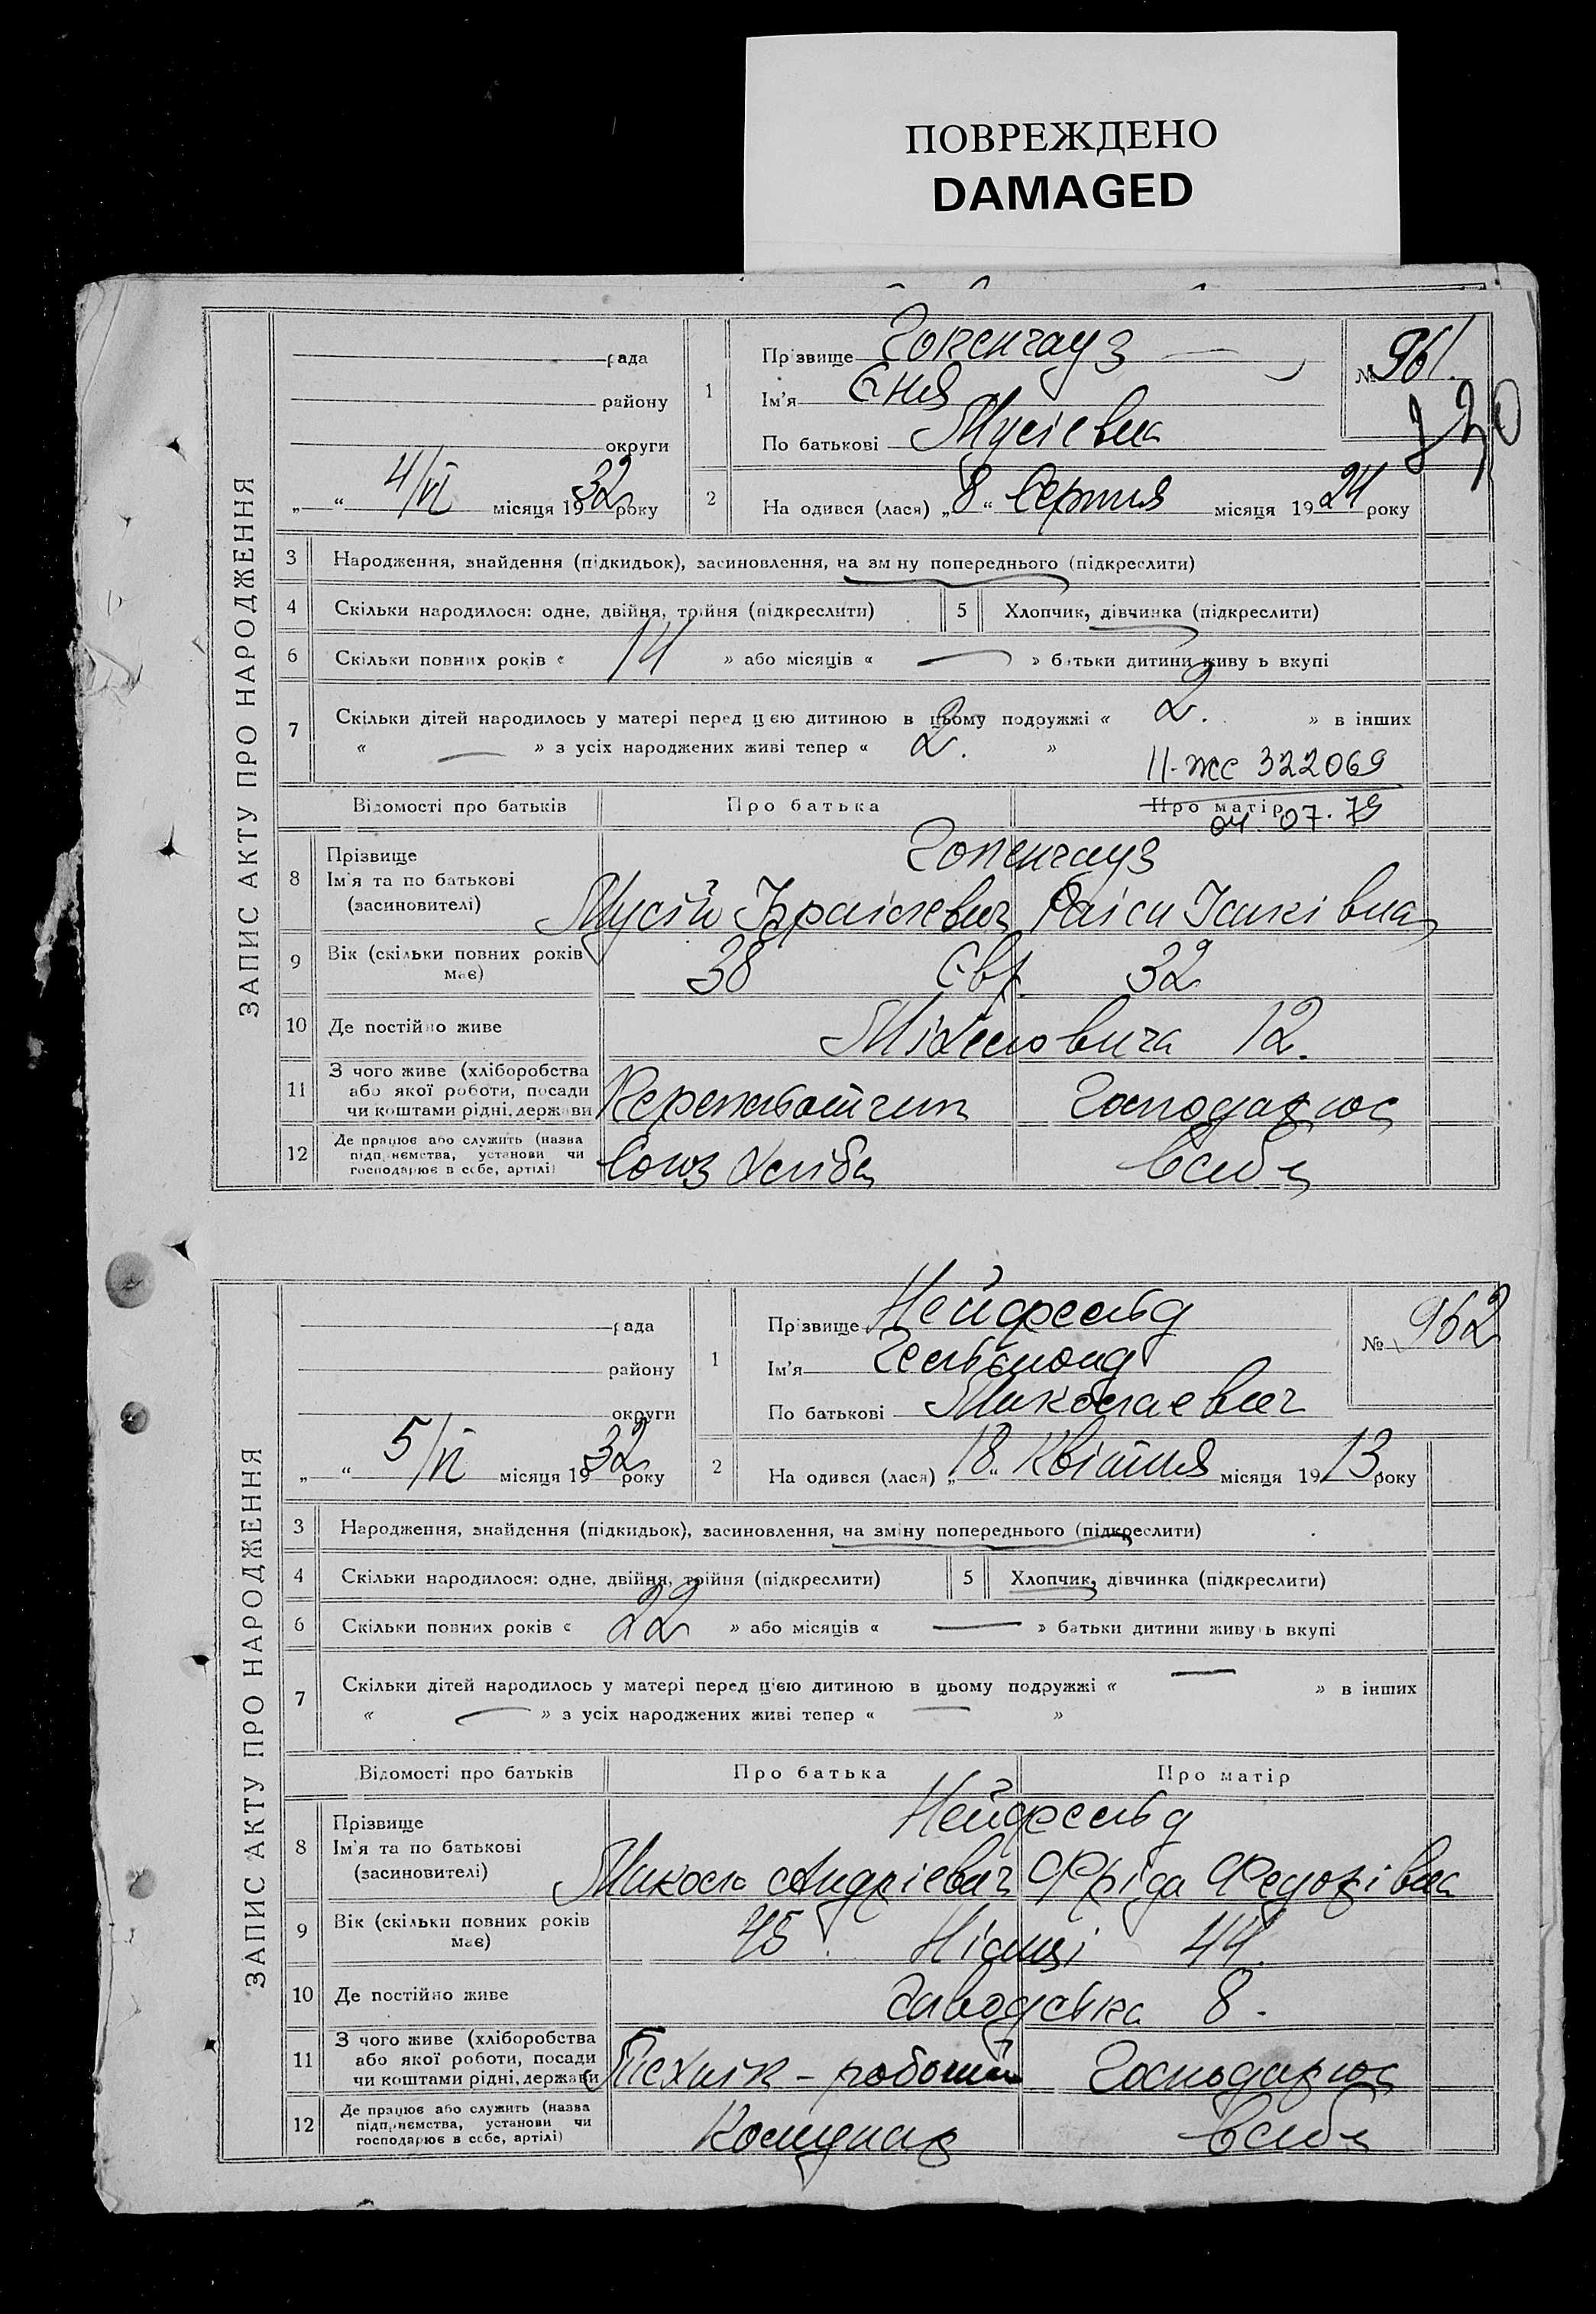 ПОВРЕЖДЕНО
DAMAGED
ЗАПИС АКТУ ПРО НАРОДЖЕННЯ
рада
району
округи
„ “ 4/VI місяця 1932 року
1
Прізвище Гопенгауз
Ім'я Єня
По батькові Мусієвна
№ 961.
2
На одився (лася) „8“ Серпня місяця 1924 року
3 Народження, знайдення (підкидьок), засиновлення, на зм ну попереднього (підкреслити)
4 Скільки народилося: одне, двійня, трійня (підкреслити) 5 Хлопчик, дівчинка (підкреслити)
6 Скільки повних років « 14 » або місяців « — » батьки дитини живу ь вкупі
7 Скільки дітей народилось у матері перед цією дитиною в цьому подружжі « 2. » в інших
« — » з усіх народжених живі тепер « 2. »
II-ЖС 322069
04.07.79
Відомості про батьків Про батька Про матір
8 Прізвище
Ім'я та по батькові
(засиновителі)
Гопенгауз
Мусій Раіса Ісаківна
9 Вік (скільки повних років має) 38 Євр. 32
10 Де постійно живе 12.
11 З чого живе (хліборобства
або якої роботи, посади
чи коштами рідні, держави
Господарює
12 Де працює або служить (назва
підприємства, установи чи
господарює в себе, артілі)
Союз Хліба в себе
ЗАПИС АКТУ ПРО НАРОДЖЕННЯ
рада
району
округи
„ “ 5/VI місяця 1932 року
1
Прізвище Нейфельд
Ім'я Гельмонд
По батькові Миколаевич
№ 962
2
На одився (лася) „18“ Квітня місяця 1913 року
3 Народження, знайдення (підкидьок), засиновлення, на зміну попереднього (підкреслити)
4 Скільки народилося: одне, двійня, трійня (підкреслити) 5 Хлопчик, дівчинка (підкреслити)
6 Скільки повних років « 22 » або місяців « — » батьки дитини живу ь вкупі
7 Скільки дітей народилось у матері перед цією дитиною в цьому подружжі « — » в інших
« — » з усіх народжених живі тепер « — »
Відомості про батьків Про батька Про матір
8 Прізвище
Ім'я та по батькові
(засиновителі)
Нейфельд
Микола Андрієвич Фріда Федорівна
9 Вік (скільки повних років має) 45. Німці 44.
10 Де постійно живе Заводська 8.
11 З чого живе (хліборобства
або якої роботи, посади
чи коштами рідні, держави
Технік - Господарює
12 Де працює або служить (назва
підприємства, установи чи
господарює в себе, артілі)
Комунар в себе